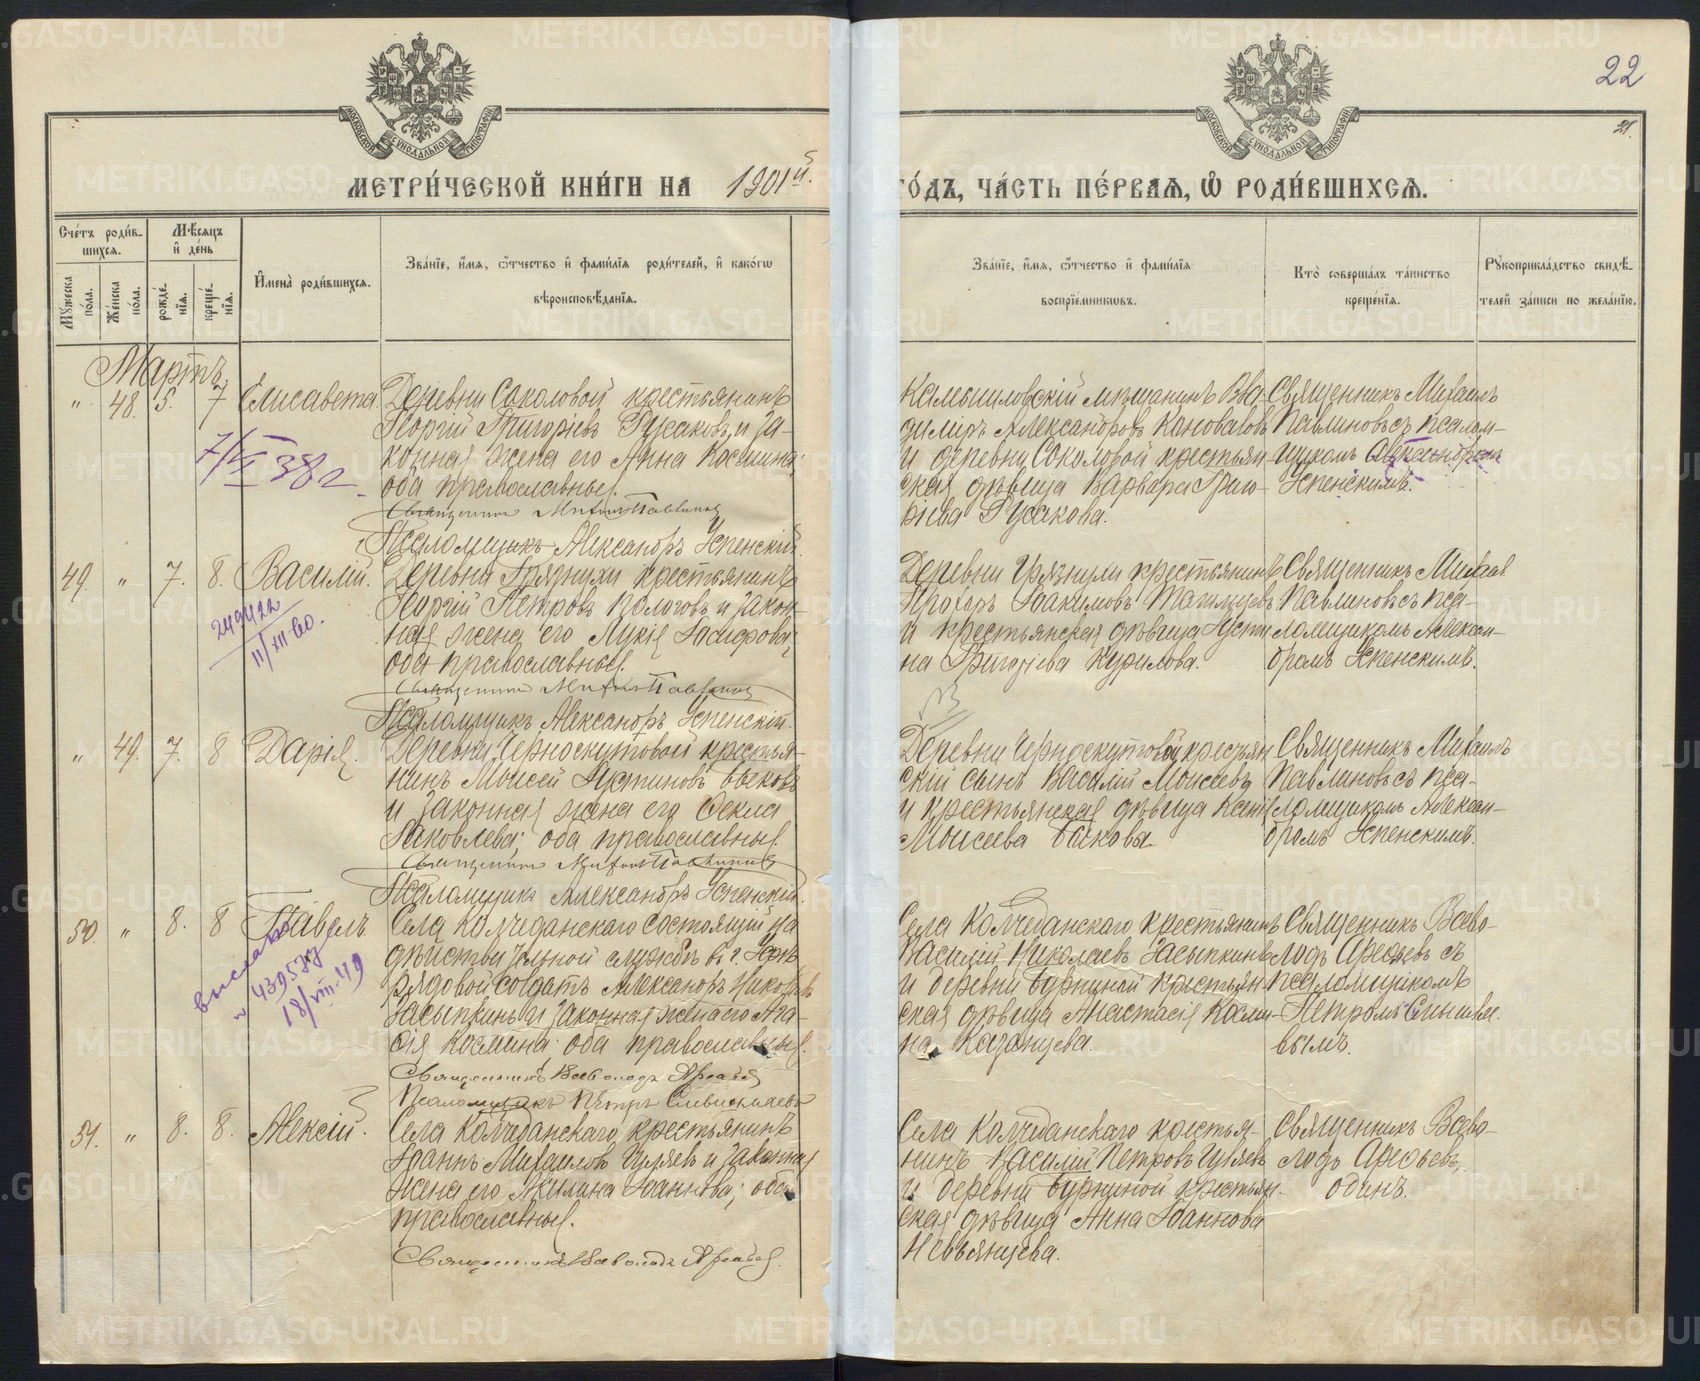 22
21.
МЕТРИ́ЧЕСКОЙ КНИ́ГИ НА 1901й.
ГО́ДЪ, ЧА́СТЬ ПЕ́РВАѦ, Ѡ РОДИ́ВШИХСѦ.
Сче́тъ роди́в-
шихся.
Мѣсяцъ
и де́нь
Му́жеска по́ла.
Же́нска по́ла.
рожде́нїя.
креще́нїя.
Имена̀ роди́вшихся.
Зва́нїе, и́мя, ѻ́тчество и фами́лїя роди́телей, и како́гѡ
вѣроисповѣ́данїя.
Зва́нїе, и́мя, ѻ́тчество и фами́лїя
воспрїе́мникѡвъ.
Кто̀ соверша́лъ та́инство
креще́нїя.
Рукоприкла́дство свидѣ́-
телей за́писи по жела́нїю.
Мартъ
" 48. 5. 7 Елисавета.
Деревни Соколовой крестьянинъ
Георгій Григоріевъ Русаковъ, и за-
конная жена его Анна Космина;
оба православные.
Священникъ Михаилъ Павлиновъ
Псаломщикъ Александръ Успенскій.
Камышловскій мѣщанинъ Вла-
димиръ Александровъ Коноваловъ
и деревни Соколовой крестьян-
ская дѣвица Варвара Григо-
ріева Русакова.
Священникъ Михаилъ
Павлиновъ съ псалом-
щикомъ Александромъ
Успенскимъ.
38 г.
49. " 7. 8. Василій.
Деревни Грязнухи крестьянинъ
Георгій Петровъ Вологовъ, и закон-
ная жена его Лукія
оба православные.
Священникъ Михаилъ Павлиновъ
Псаломщикъ Александръ Успенскій
Деревни Грязнухи крестьянинъ
Прохоръ Іоакимовъ
и крестьянская дѣвица Усти-
на Григоріева Курилова.
Священникъ Михаилъ
Павлиновъ съ пса-
ломщикомъ Алексан-
дромъ Успенскимъ.
11/XII-60.
" 49. 7. 8 Дарія.
Деревни Черноскутовой крестья-
нинъ Моисей Устиновъ Быковъ
и законная жена его Ѳекла
Іаковлева; оба православные.
Священникъ Михаилъ Павлиновъ
Псаломщикъ Александръ Успенскій.
Деревни Черноскутовой крестьян-
скій сынъ Василій Моисеевъ
и крестьянская дѣвица
Моисеева Быкова.
Священникъ Михаилъ
Павлиновъ съ пса-
ломщикомъ Алексан-
дромъ Успенскимъ.
50. " 8. 8 Павелъ
Села Колчеданскаго состоящій на
дѣйствительной службѣ въ г.
рядовой солдатъ Александръ Никол.
Засыпкинъ и законная жена его Ага-
ѳія Космина; оба православные.
Священникъ Всеволодъ Арефьевъ
Псаломщикъ Петръ
Села Колчеданскаго крестьянинъ
Василій Николаевъ Засыпкинъ
и деревни Бурниной крестьян-
ская дѣвица Анастасія Косми-
на Казанцева.
Священникъ Всево-
лодъ Арефьевъ съ
псаломщикомъ
Петромъ
вымъ.
выслано
439577
18/VIII-49
51. " 8. 8. Алексій.
Села Колчеданскаго крестьянинъ
Іоаннъ Михаиловъ Гуляевъ и законная
жена его Іоаннова; оба
православные.
Священникъ Всеволодъ Арефьевъ.
Села Колчеданскаго крестья-
нинъ Василій Петровъ Гуляевъ
и деревни Бурниной крестьян-
ская дѣвица Анна Іоаннова
Невьянцева.
Священникъ Всево-
лодъ Арефьевъ,
одинъ.
METRIKI.GASO-URAL.RU